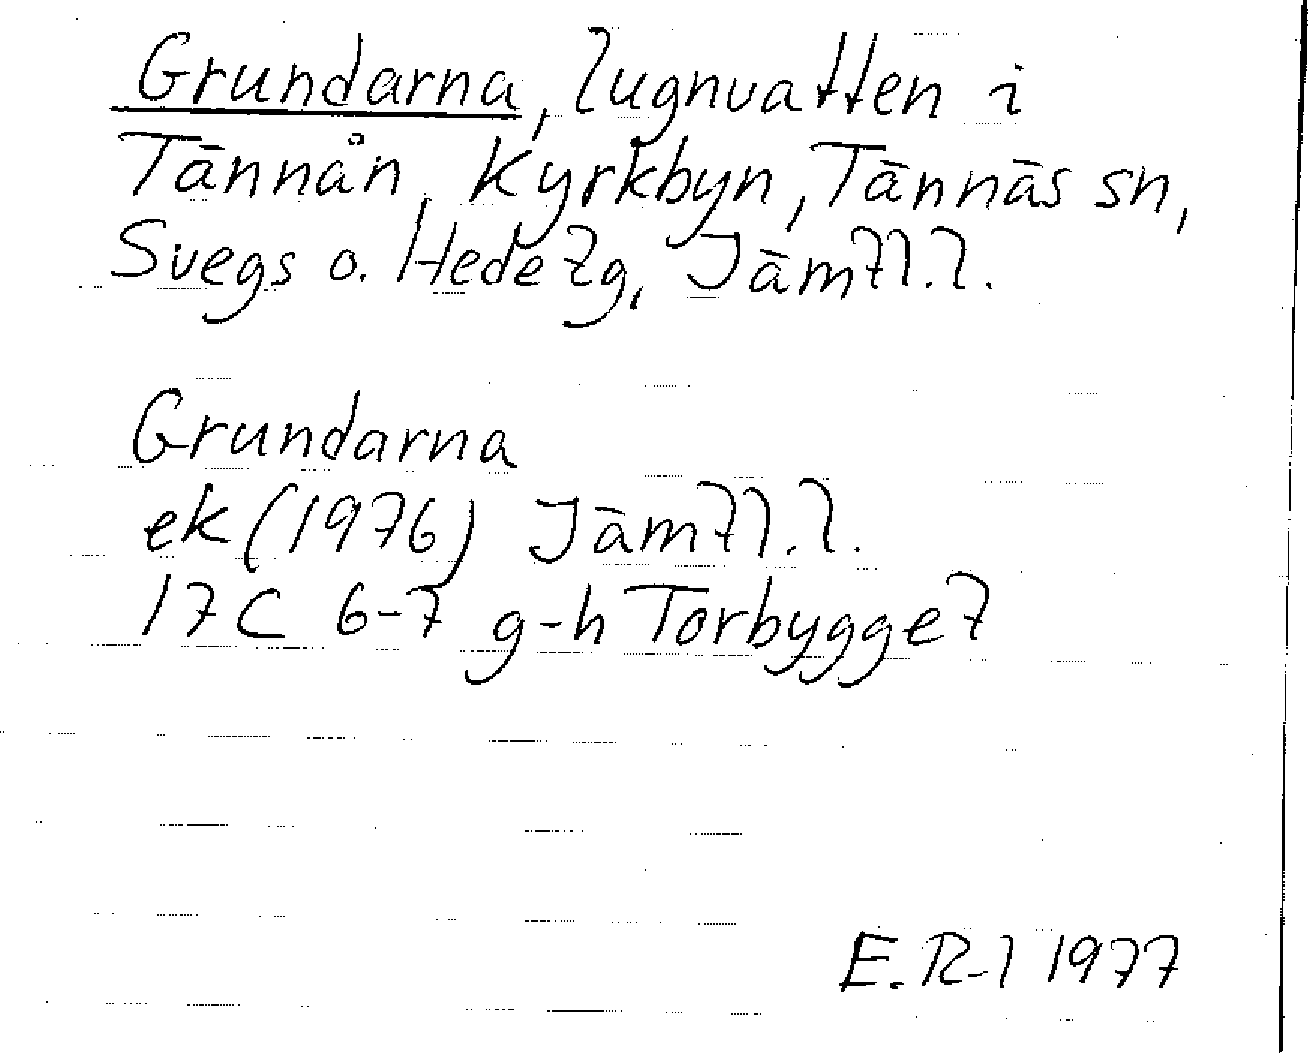 Grundarna, lugnvatten i
Tännån, Kyrkbyn, Tännäs sn,
Svegs o. Hede tg, Jämtl. l.
Grundarna
ek (1976) Jämtl. l.
17C 6-7 g-h Torbygget
E. R-l 1977